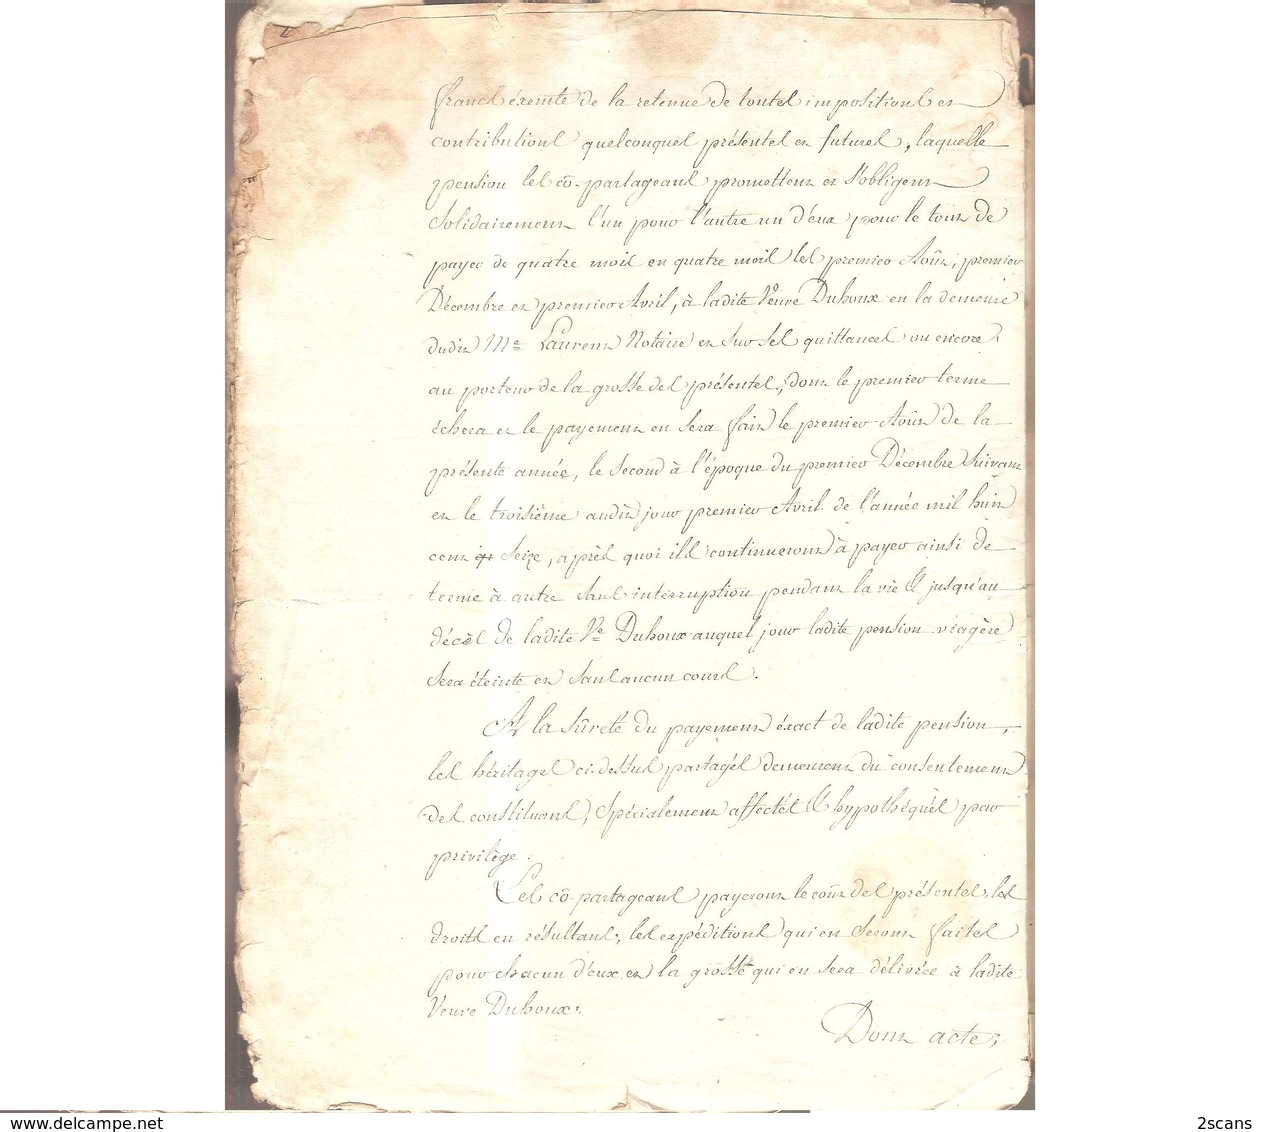 franche éxemte de la retenue de toutes impositions et
contributions quelconques présentes et futures, laquelle
pension les cô-partageans promettent et s'obligent
solidairement l'un pour l'autre un d'eux pour le tout de
payer de quatre mois en quatre mois les premier Aoûst, premier
Décembre et premier Avril, à ladite Veuve Duhoux en la demeure
dudit Me Laurent Notaire et sur ses quittances ou encore
au porteur de la grosse des présentes, dont le premier terme
échera et le payement en sera fait le premier Aoûst de la
présente année, le second à l'époque du premier Décembre suivant
et le troisième audit jour premier Avril de l'année mil huit
cent seize, après quoi ils continueront à payer ainsi de
terme à autre sans interruption pendant la vie & jusqu'au
décès de ladite Ve Duhoux auquel jour ladite pension viagère
sera éteinte et sans aucun cours.
A la sûreté du payement éxact de ladite pension,
les héritages ci-dessus partagés demeurent du consentement
des constituans, spécialement affectés & hypothéqués par
privilège.
Les cô-partageans payeront le coût des présentes, les
droits en résultans, les expéditions qui en seront faites
pour chacun d'eux et la grosse qui en sera délivrée à ladite
Veuve Duhoux.
Dont acte;
www.delcampe.net
2scans